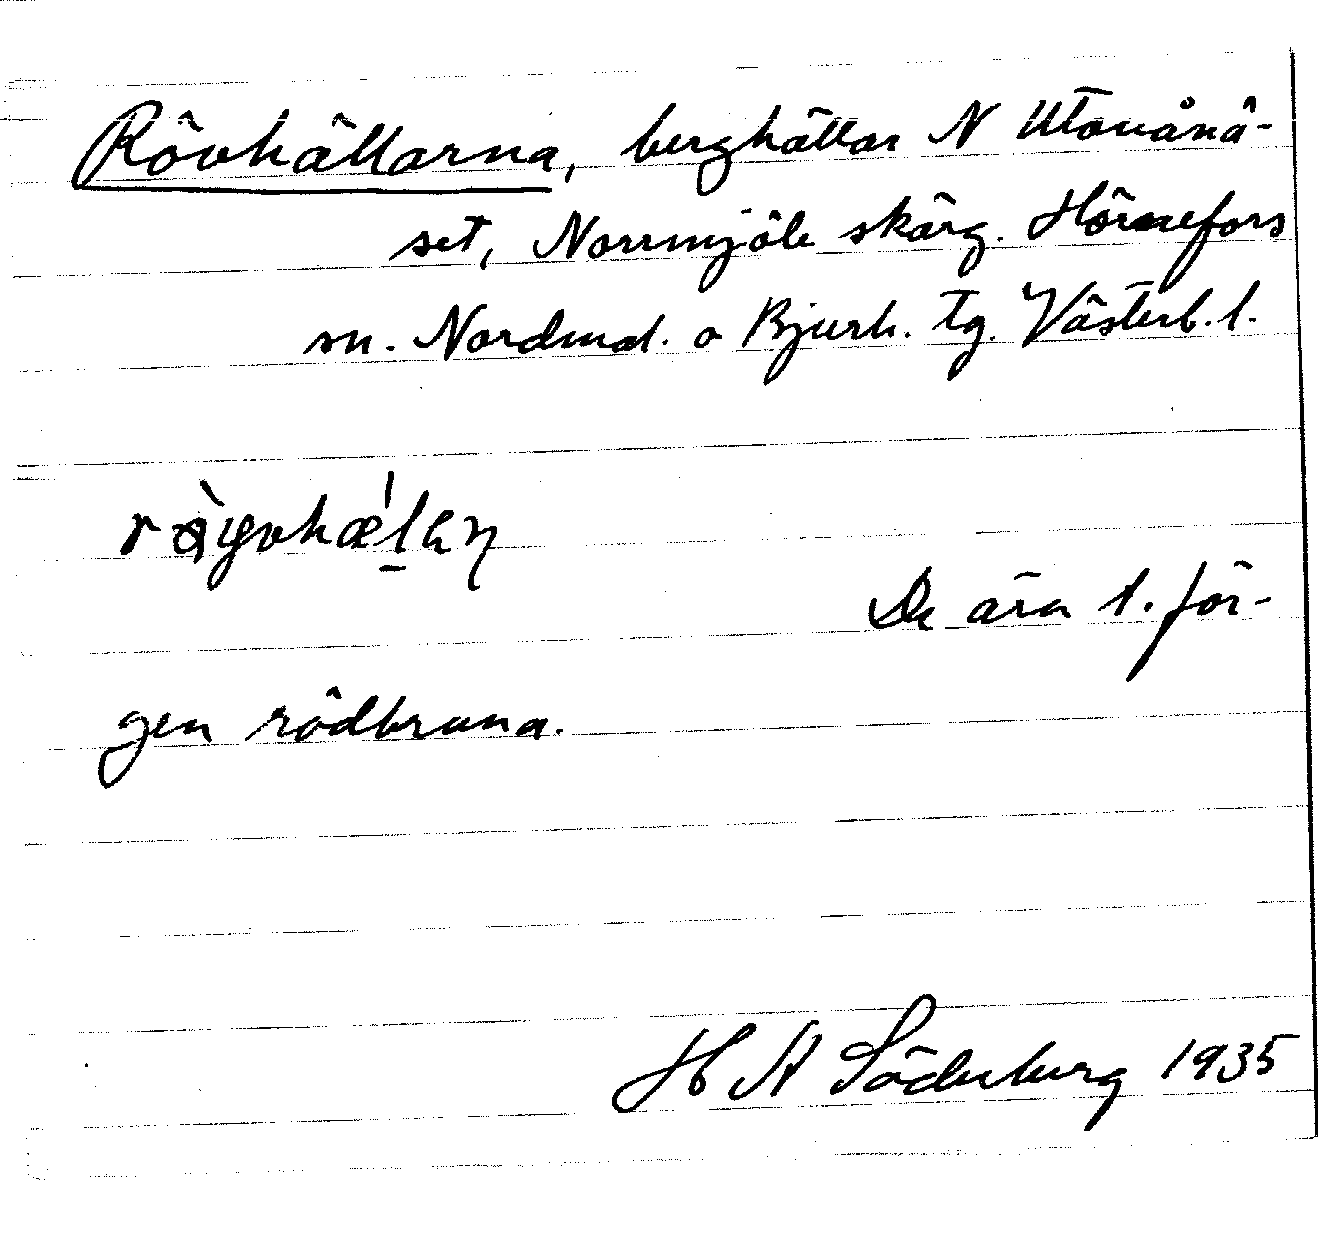 Rövhällarna, berghällar N Utonånä-
set, Norrmjöle skärg. Hörnefors
sn. Nordmal. o Bjurh. tg. Västerb. l.
De ära t. fär-
gen rödbruna.
H A Söderberg 1935